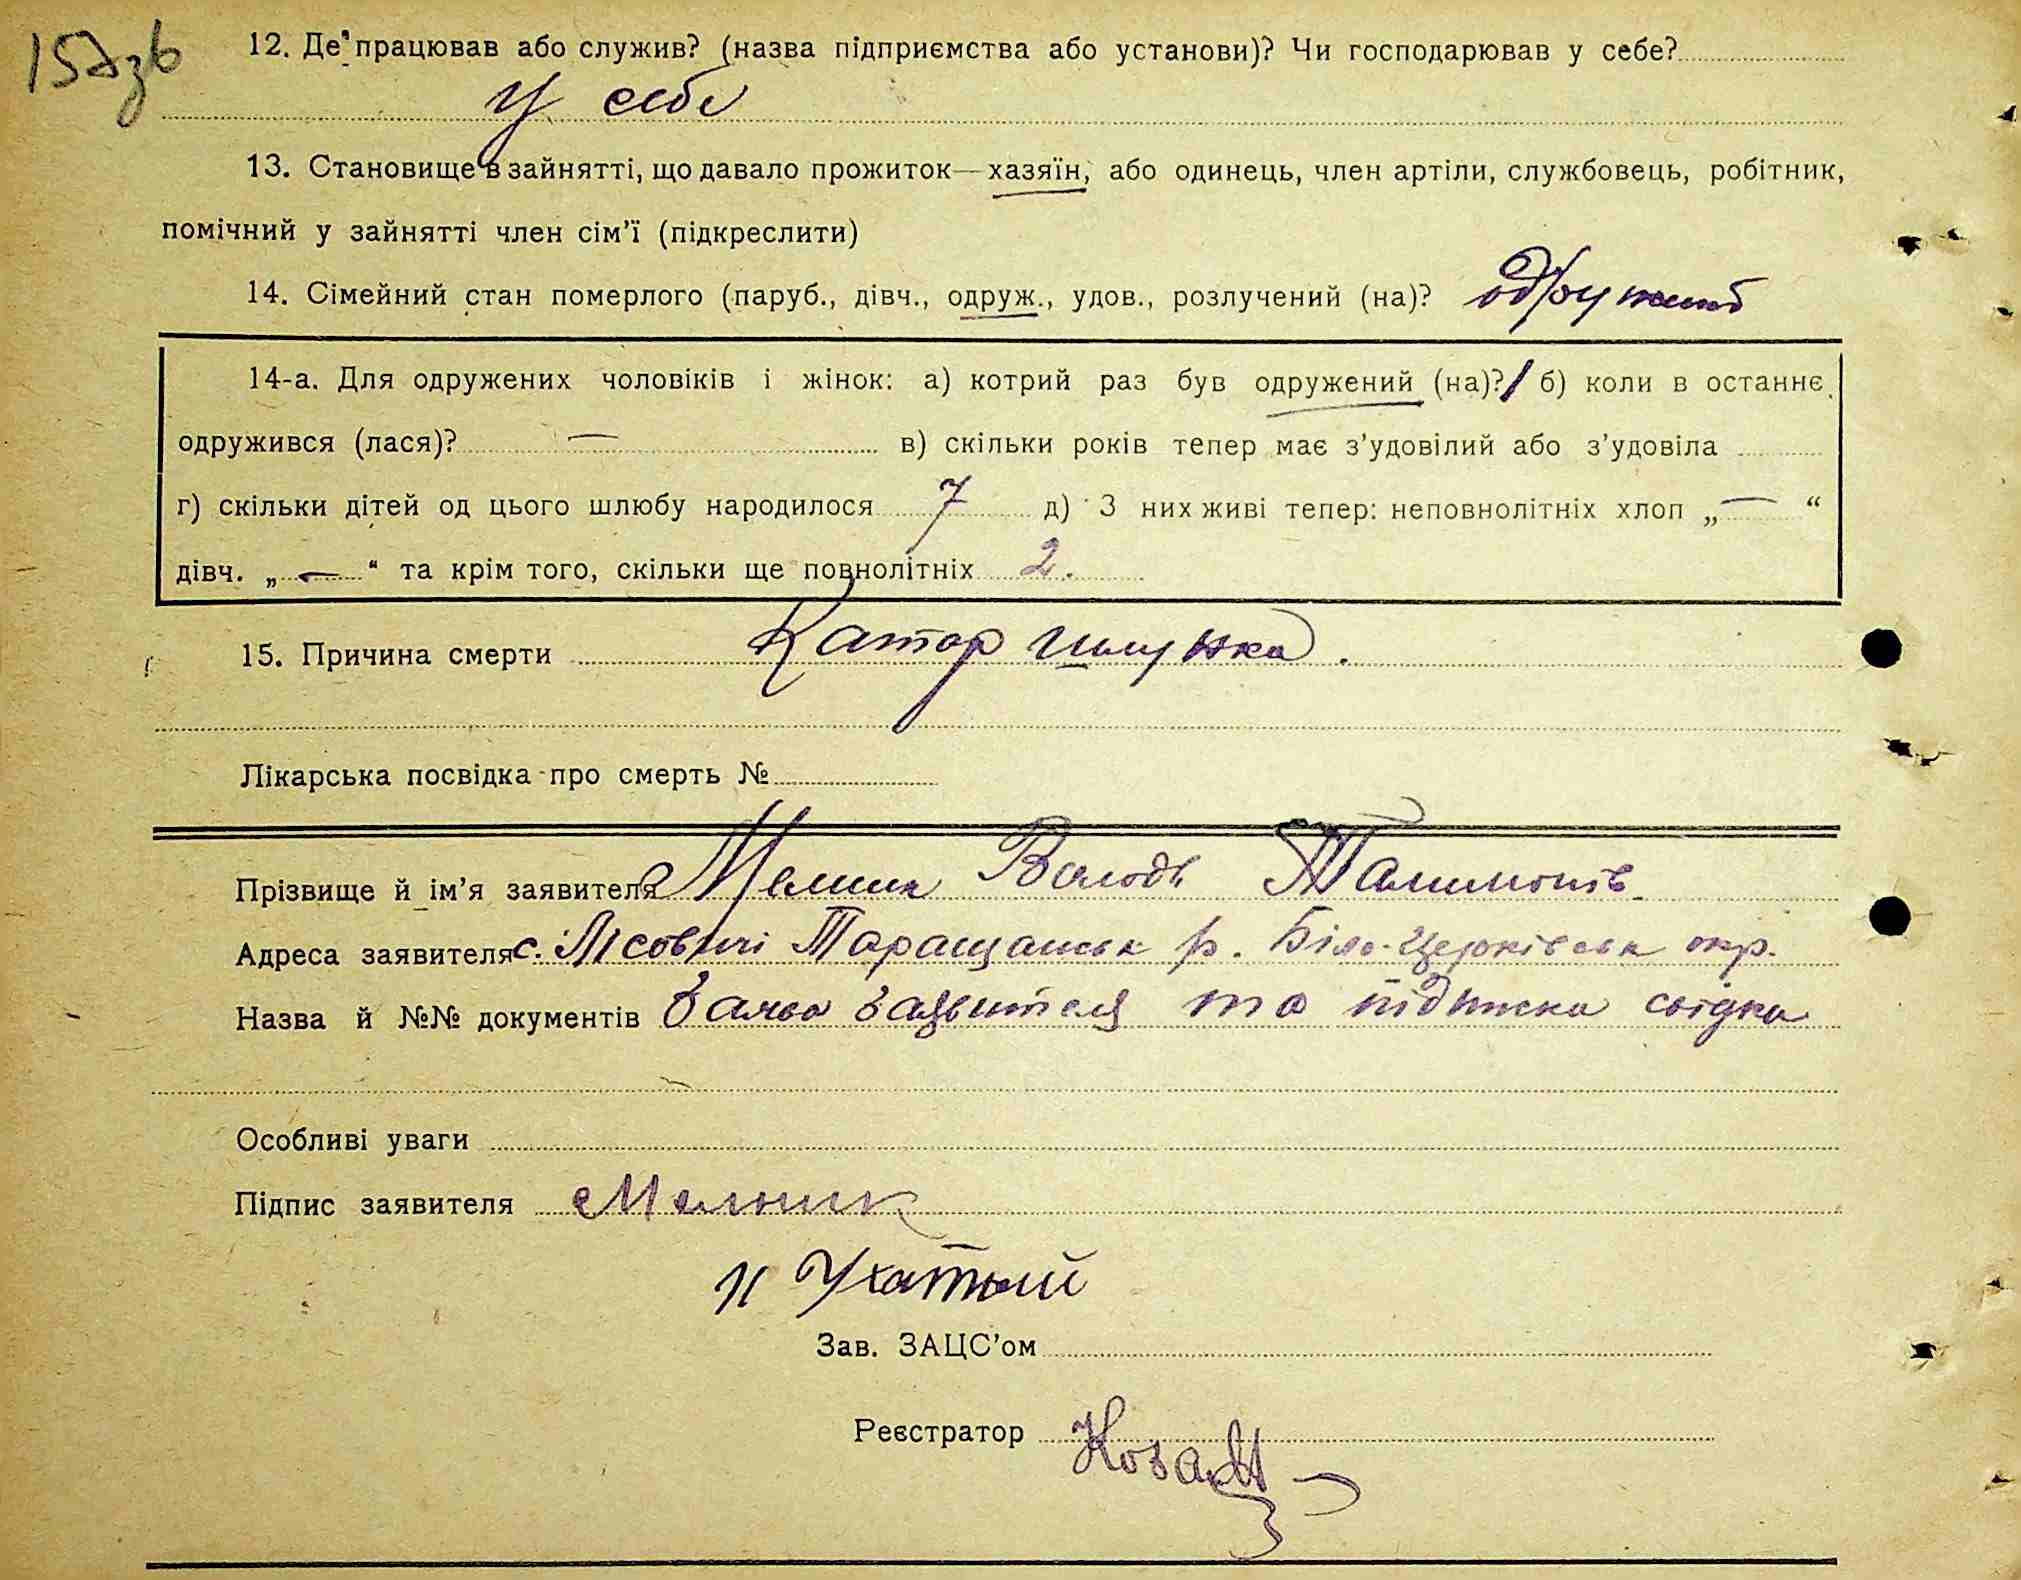 157зв
12. Де працював або служив? (назва підприємства або установи)? Чи господарював у себе?
у себе
13. Становище в зайнятті, що давало прожиток—хазяїн, або одинець, член артіли, службовець, робітник,
помічний у зайнятті член сім'ї (підкреслити)
14. Сімейний стан померлого (паруб., дівч., одруж., удов., розлучений (на)?
14-а. Для одружених чоловіків і жінок: а) котрий раз був одружений (на)? 1 б) коли в останнє
одружився (лася)? — в) скільки років тепер має з'удовілий або з'удовіла
г) скільки дітей од цього шлюбу народилося 7 д) З них живі тепер: неповнолітніх хлоп „ — “
дівч. „ — “ та крім того, скільки ще повнолітніх 2.
15. Причина смерти Катар шлунка.
Лікарська посвідка про смерть №
Прізвище й ім'я заявителя Мелник Володь
Адреса заявителя с. Лісовичі Таращанськ р. Біло-Церківськ окр.
Назва й №№ документів заява заявителя та підписка свідка
Особливі уваги
Підпис заявителя Мельник
Ухатый
Зав. ЗАЦС'ом
Реєстратор